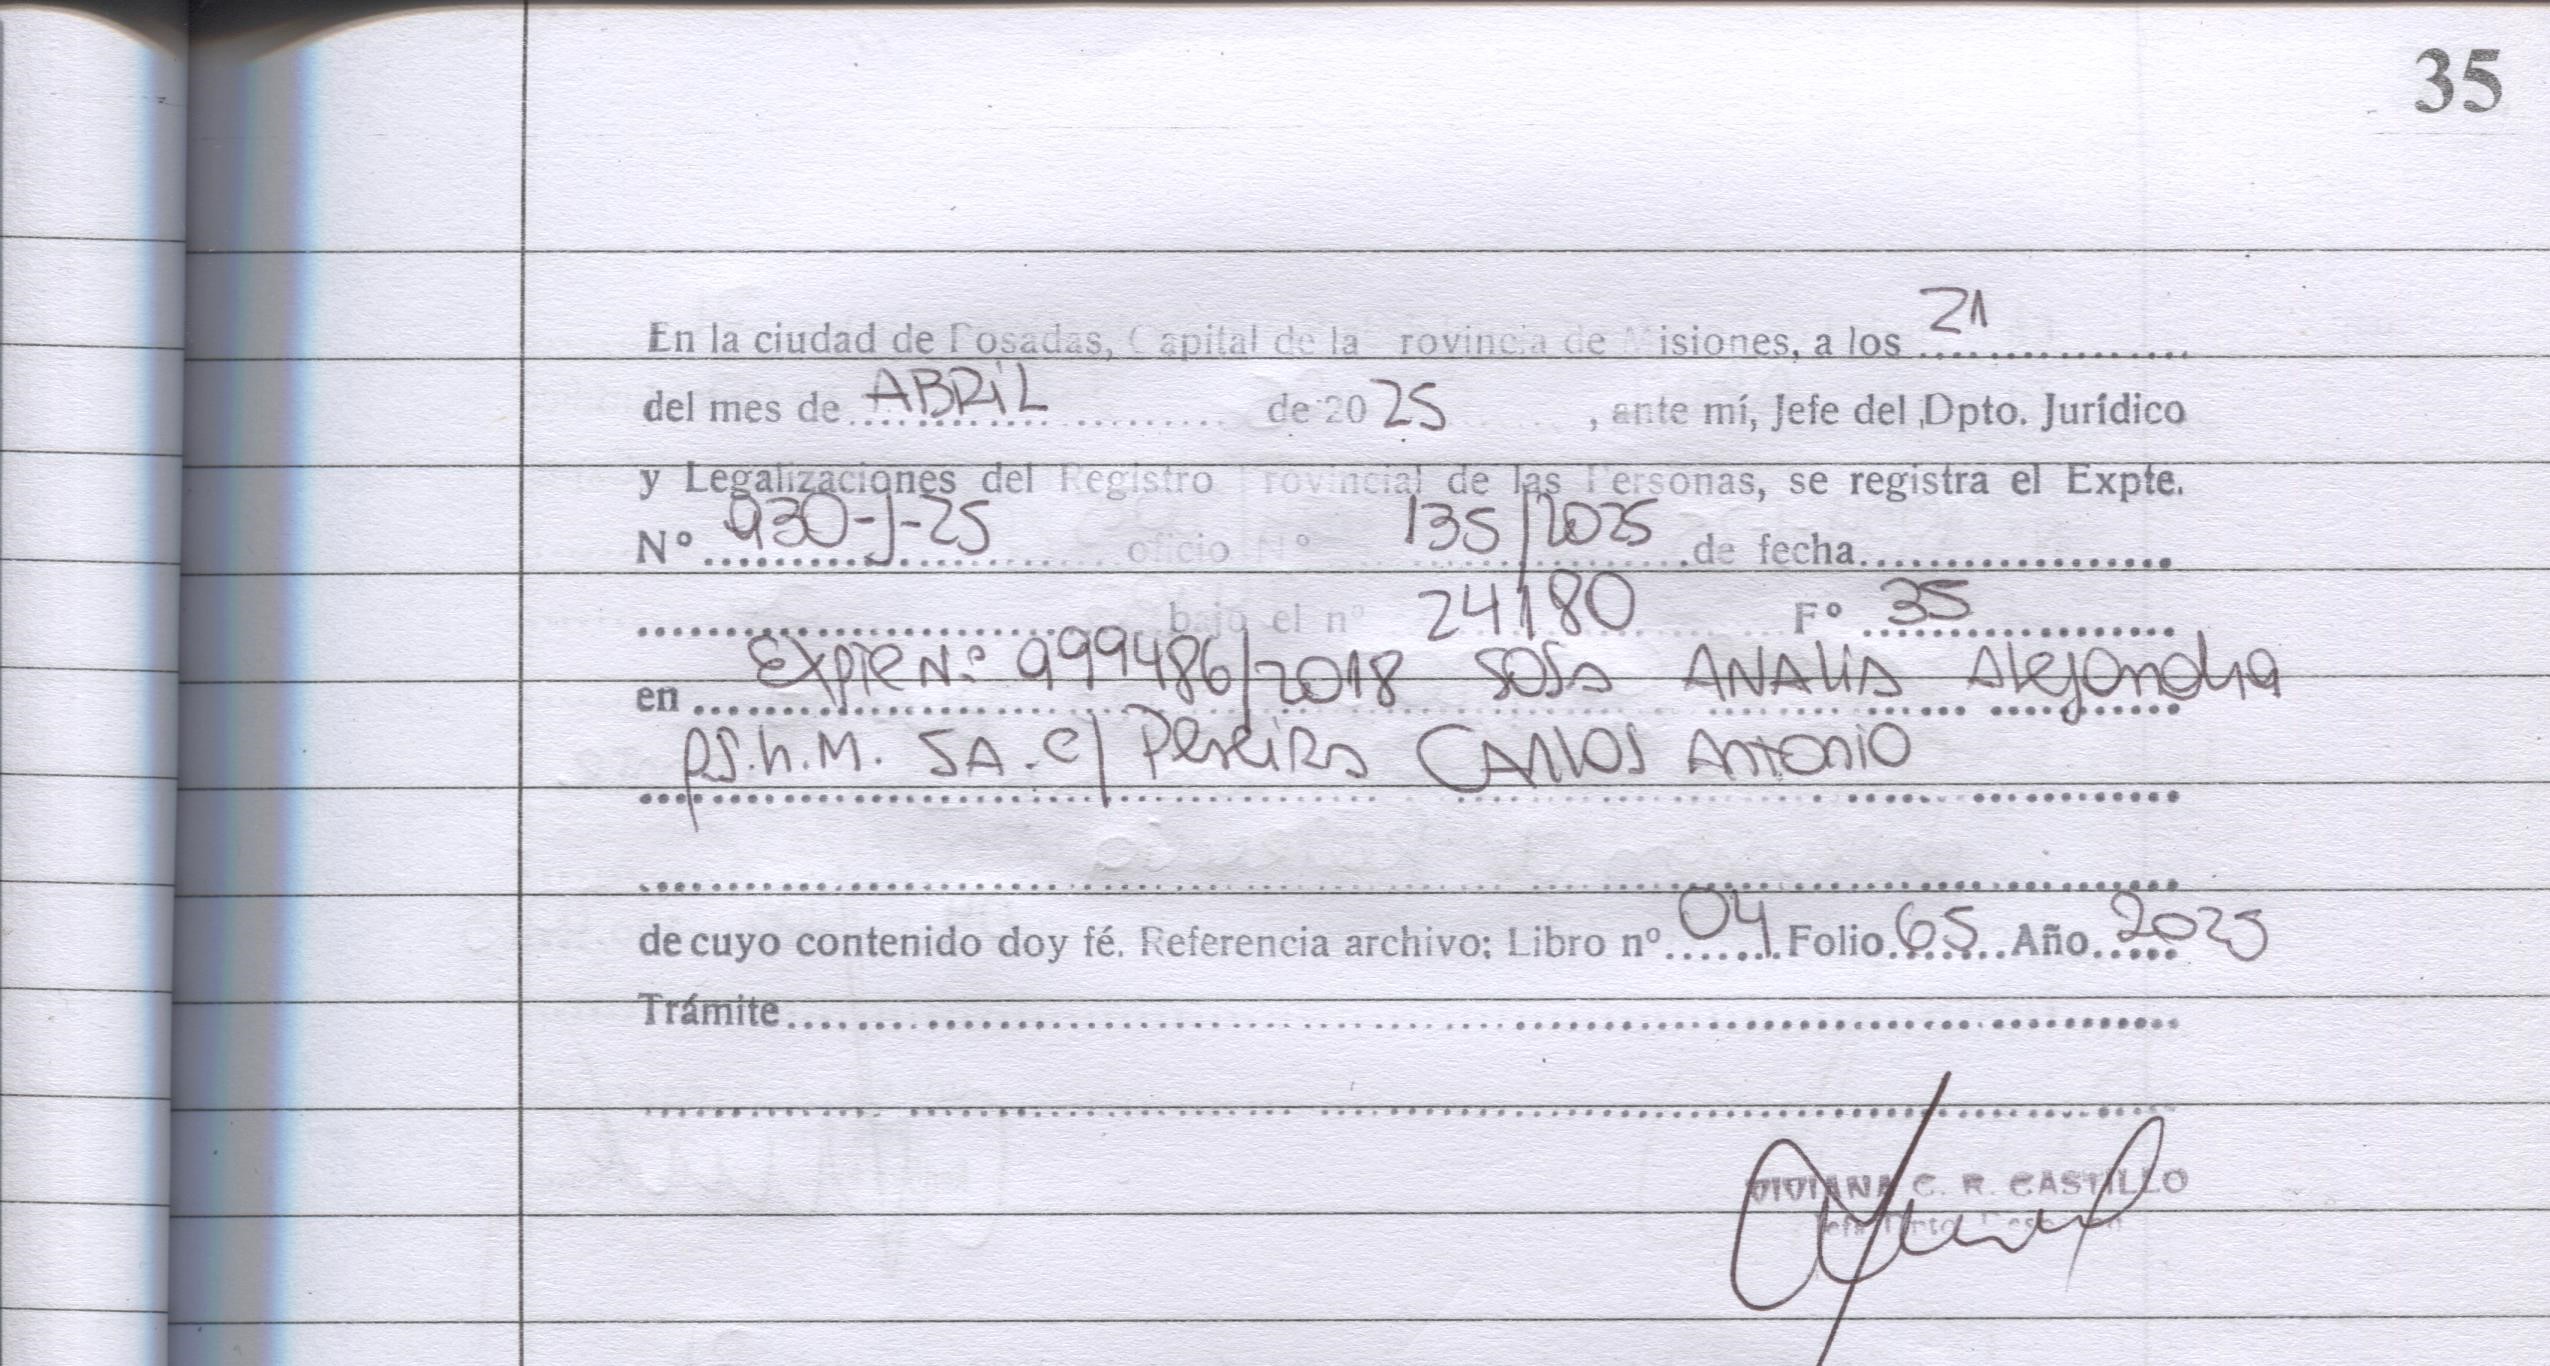 35
En la ciudad de Posadas, Capital de la Provincia de Misiones, a los 21
del mes de ABRIL de 2025, ante mí, Jefe del Dpto. Jurídico
y Legalizaciones del Registro Provincial de las Personas, se registra el Expte.
N° 930-J-25 oficio N° 135/2025 de fecha
bajo el n° 24180 F° 35
en Expte N° 999486/2018 SOSA ANALIA Alejandra
p.s.h.M. S.A. c/ Pereira CARLOS ANTONIO
de cuyo contenido doy fé. Referencia archivo: Libro n° 04 Folio 65 Año 2025
Trámite
VIVIANA C. R. CASTILLO